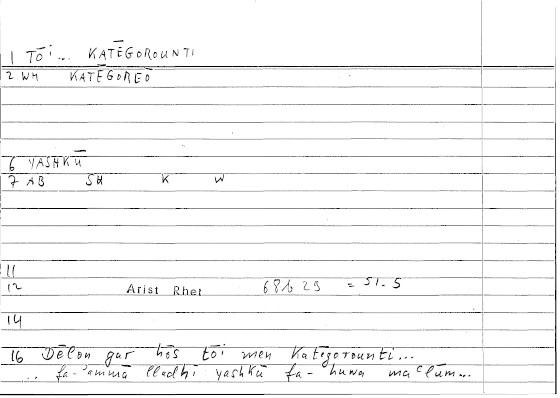 1 TŌI... KATĒGOROUNTI
2 WM KATĒGOREO
6 YASHKŪ
7 AB SH K W
11
12 Arist Rhet 68b29 = 51.5
14
16 Dēlon gar hōs tōi men Katēgorounti...
.. fa-ʾammā lladhī yashkū fa-huwa maʿlūm...